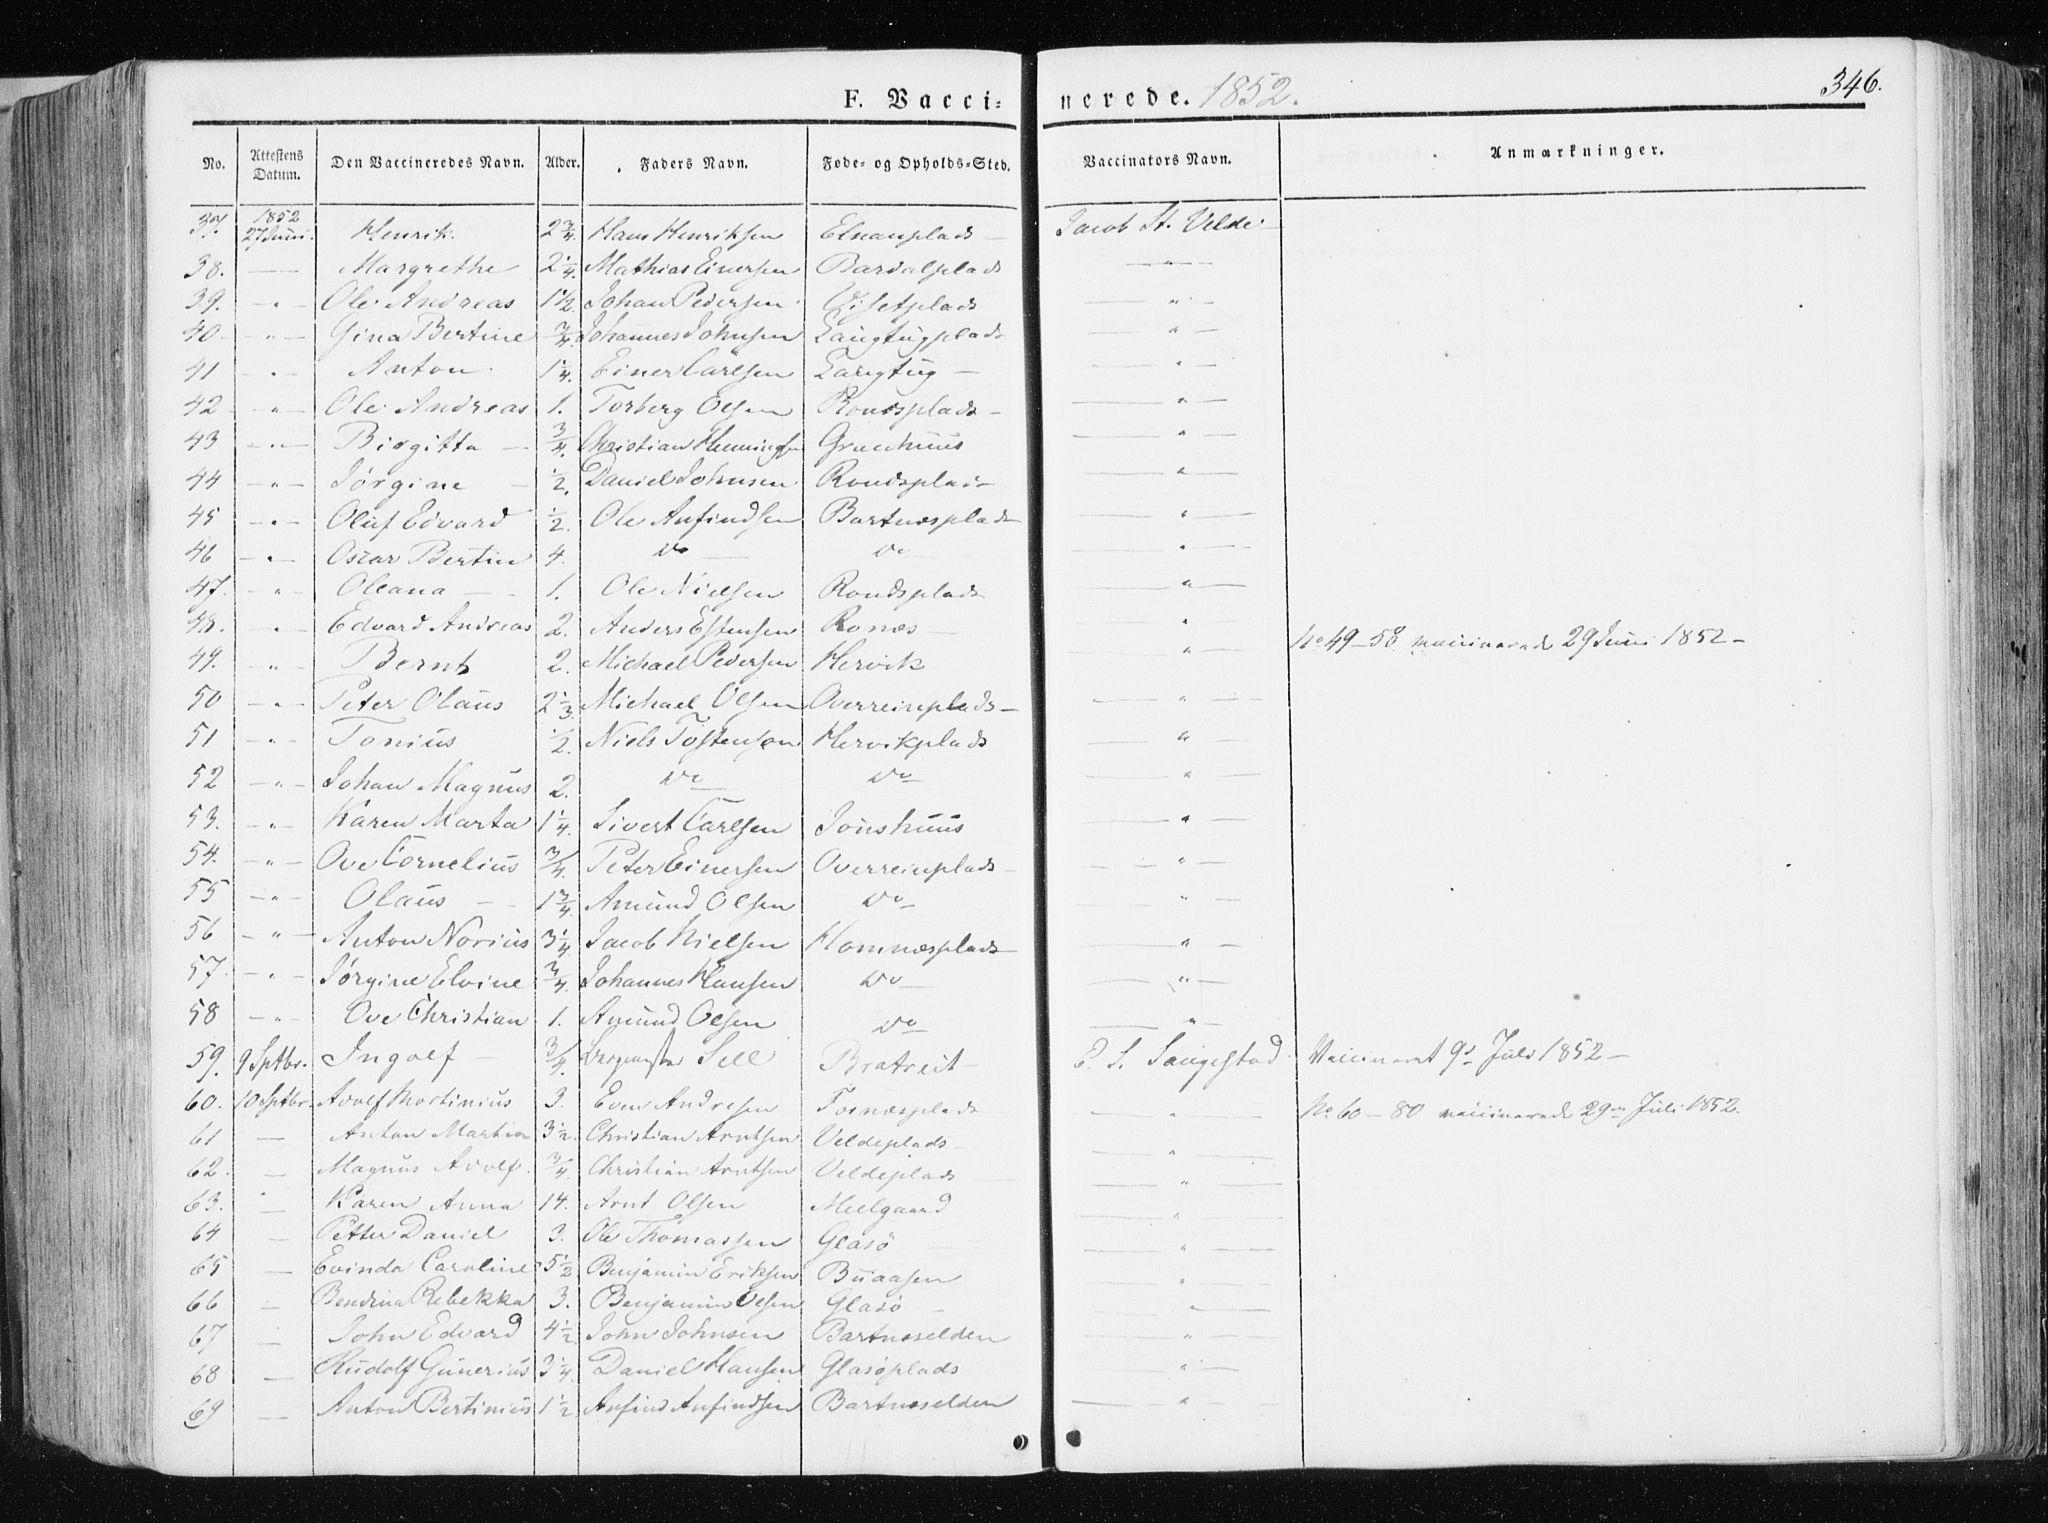 346.
F. Vaccinerede. 1852.
No. Attestens Datum. Den Vaccineredes Navn. Alder. Faders Navn. Føde- og Opholds-Sted. Vaccinators Navn. Anmærkninger.
37. 1852 27 Juni. Henrik. 2 3/4. Hans Henriksen Elnanplads — Jacob St. Velde
38. — Margrethe 2 1/4. Mathias Einersen Bardalplads — " —
39. — " — Ole Andreas 1 1/2. Johan Pedersen — " —
40 — " — Gina Bertine 3/4. Johannes Johnsen Langtugplads — " —
41 — " — Anton 1 1/4. Einer Carlsen Langtug — — " —
42 — " — Ole Andreas 1. Torberg Olsen Rondsplads — — " —
43 — " — Birgitta — 3/4. Christian Henningsen — " —
44 — " — Jørgine — 1/2. Daniel Johnsen Rondsplads — " —
45 — " — Oluf Edvard 1/2. Ole Anfindsen Bartnæsplads — " —
46 — " — Oscar Bertin 4. do — do — " —
47. — " — Oleana — 1. Ole Nielsen Rondsplads — " —
48. — " — Edvard Andreas 2. Anders Estensen Ronæs — — " —
49. — " — Bernt 2. Michael Pedersen Hervik — " — No 49 – 58 vaccinerede 29 Juni 1852 –
50 — " — Peter Olaus 2 1/3. Michael Olsen Overreinplads — — " —
51 — " — Tonius 1/2. Niels Tostensen Hervikplads — " —
52 — " — Johan Magnus 2. do — do — — " —
53. — " — Karen Marta 1 1/4. Sivert Carlsen Jonshuus — " —
54. — " — Ove Cornelius 3/4. Peter Einersen Overreinplads — — " —
55 — " — Olaus — 1 3/4. Amund Olsen do — — " —
56 — " — Anton Norius 3 1/4. Jacob Nielsen Homnæsplads — — " —
57. — " — Jørgine Elvine 3/4. Johannes Hansen do — — " —
58 — " — Ove Christian 1. Amund Olsen do — — " —
59. 9 Sptbr. Ingolf — 3/4. Sell Bratreit — Saugestad Vaccineret 9de Juli 1852 —
60. 10 Sptbr. Adolf Mortinius 3. Even Andresen Fosnæsplads — " — No 60 – 80 vaccinerede 29de Juli 1852.
61 — Anton Martin 3 1/2. Christian Arntsen Veldeplads — — " —
62. — Magnus Adolf. 3/4. Christian Arntsen Veldeplads — " —
63. — Karen Anna 14. Arnt Olsen Melgaard — " —
64 — Petter Daniel 3. Ole Thomassen Glasø — " —
65 — Evinda Caroline 5 1/2 Benjamin Eriksen Buaasen — " —
66 — Bendina Rebekka 3. Benjamin Olsen Glasø — — " —
67 — John Edvard 4 1/2 John Johnsen Bartnæselden — " —
68 — Rudolf Gunerius 3 1/4. Daniel Hansen Glasøplads — " —
69 — Anton Bertinius 1 1/2 Anfind Anfindsen Bartnæselden — " —